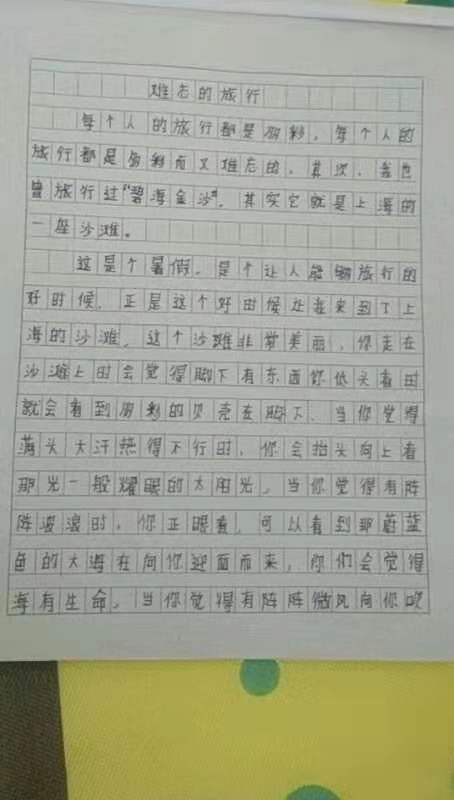 难忘的旅行
每个人的旅行都是多彩，每个人的
旅行都是多彩而又难忘的，其次，我也
曾旅行过“碧海金沙”，其实它就是上海的
一座沙滩。
这是个暑假，是个让人能够旅行的
好时候，正是这个好时候让我来到了上
海的沙滩，这个沙滩非常美丽，你走在
沙滩上时会觉得脚下有东西你低头看时
就会看到多彩的贝壳在脚下，当你觉得
满头大汗热得不行时，你会抬头向上看
那光一般耀眼的太阳光，当你觉得有阵
阵波浪时，你正眼看，可以看到那蔚蓝
色的大海在向你迎面而来，你们会觉得
海有生命，当你觉得有阵阵微风向你吹